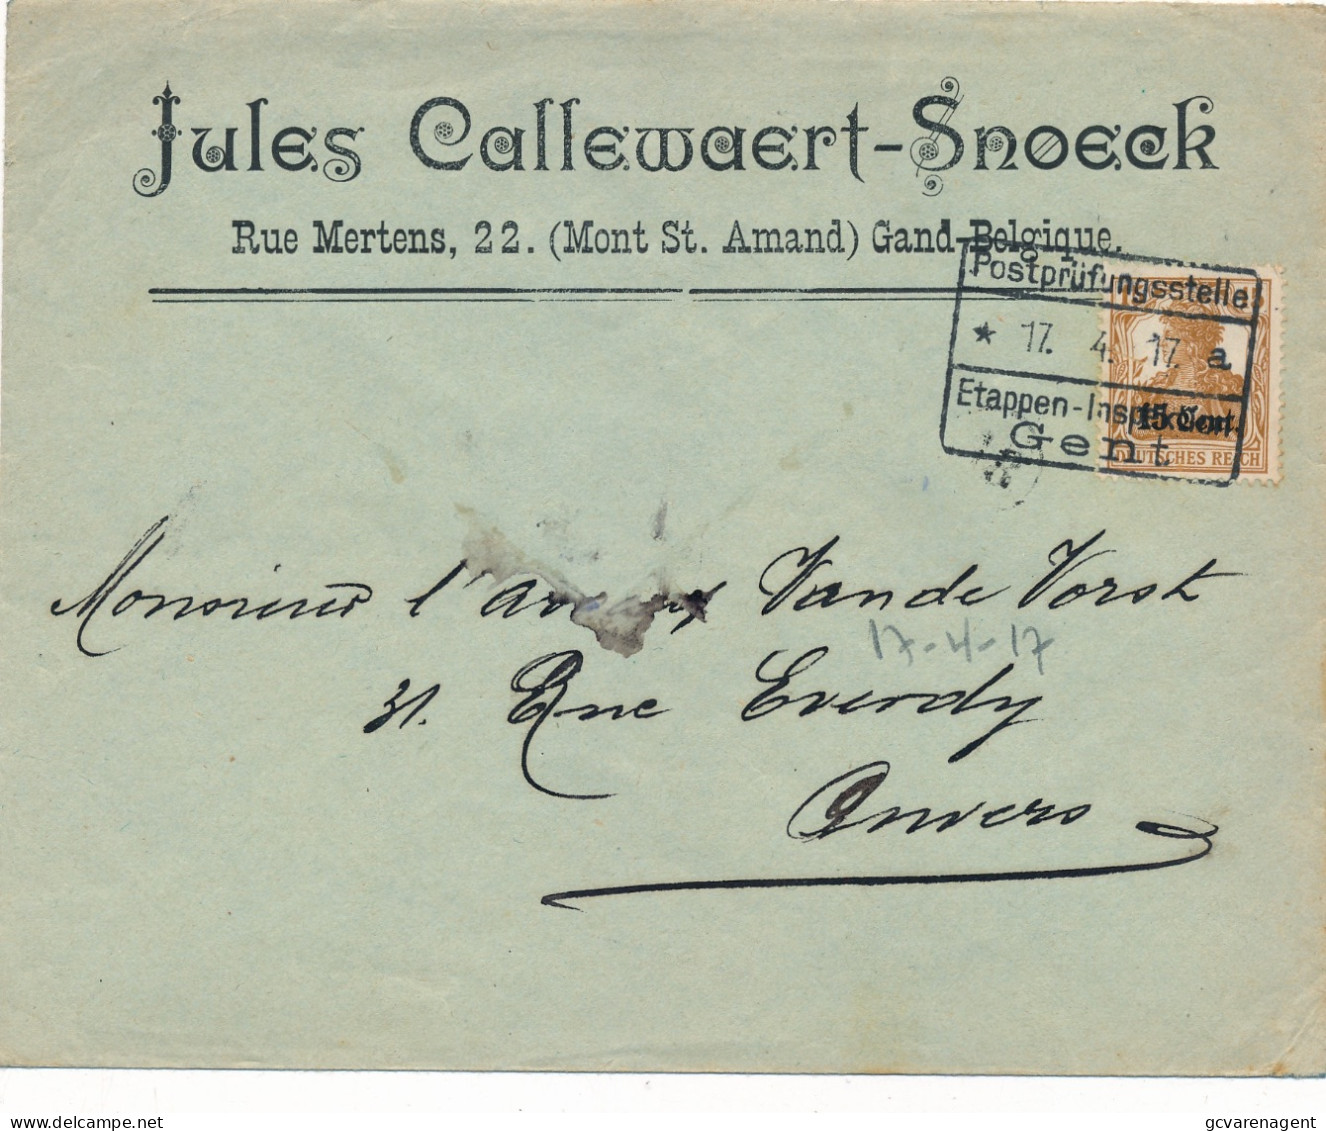 Jules Callewaert-Snoeck
Rue Mertens, 22. (Mont St. Amand) Gand-Belgique.
Postprüfungsstelle
* 17. 4. 17. a
Etappen-Inspektion
15 Cent.
Gent
DEUTSCHES REICH
Monsieur l'avocat Van de Vorst
17-4-17
31. Rue Everdy
Anvers
delcampe.net
gcvarenagent